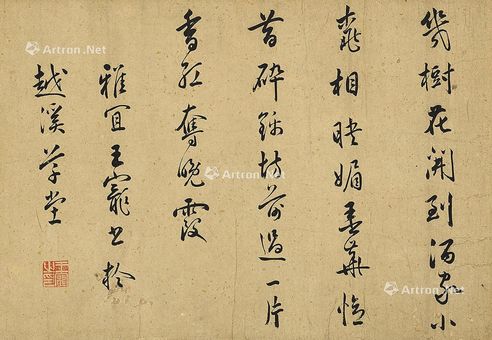 幾樹花開到酒家小
桃相映媚春華憶
昔碎錦坊前過一片
香紅奪晚霞
雅宜王寵書於
越溪草堂
Artron.Net
Artron.Net
Artron.Net
Artron.Net